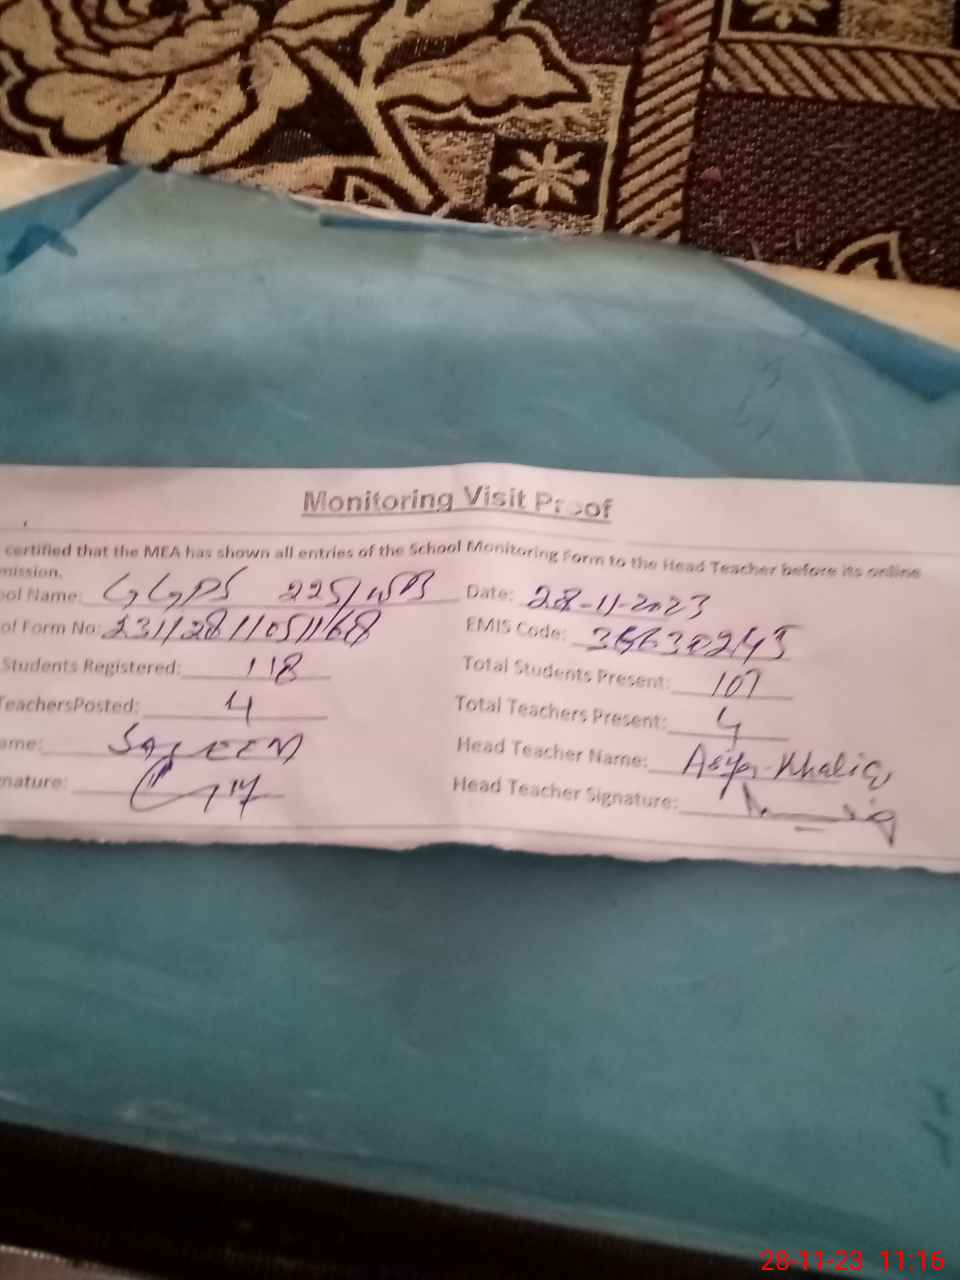 Monitoring Visit Proof
certified that the MEA has shown all entries of the School Monitoring Form to the Head Teacher before its online
mission.
ool Name: GGPS 225/WB Date: 28-11-2023
of Form No: 23112811051168 EMIS Code: 36630245
Students Registered: 118 Total Students Present: 107
TeachersPosted: 4 Total Teachers Present: 4
ame: SALEEM Head Teacher Name: Asiya Khaliq
nature: Head Teacher Signature:
28-11-23 11:16